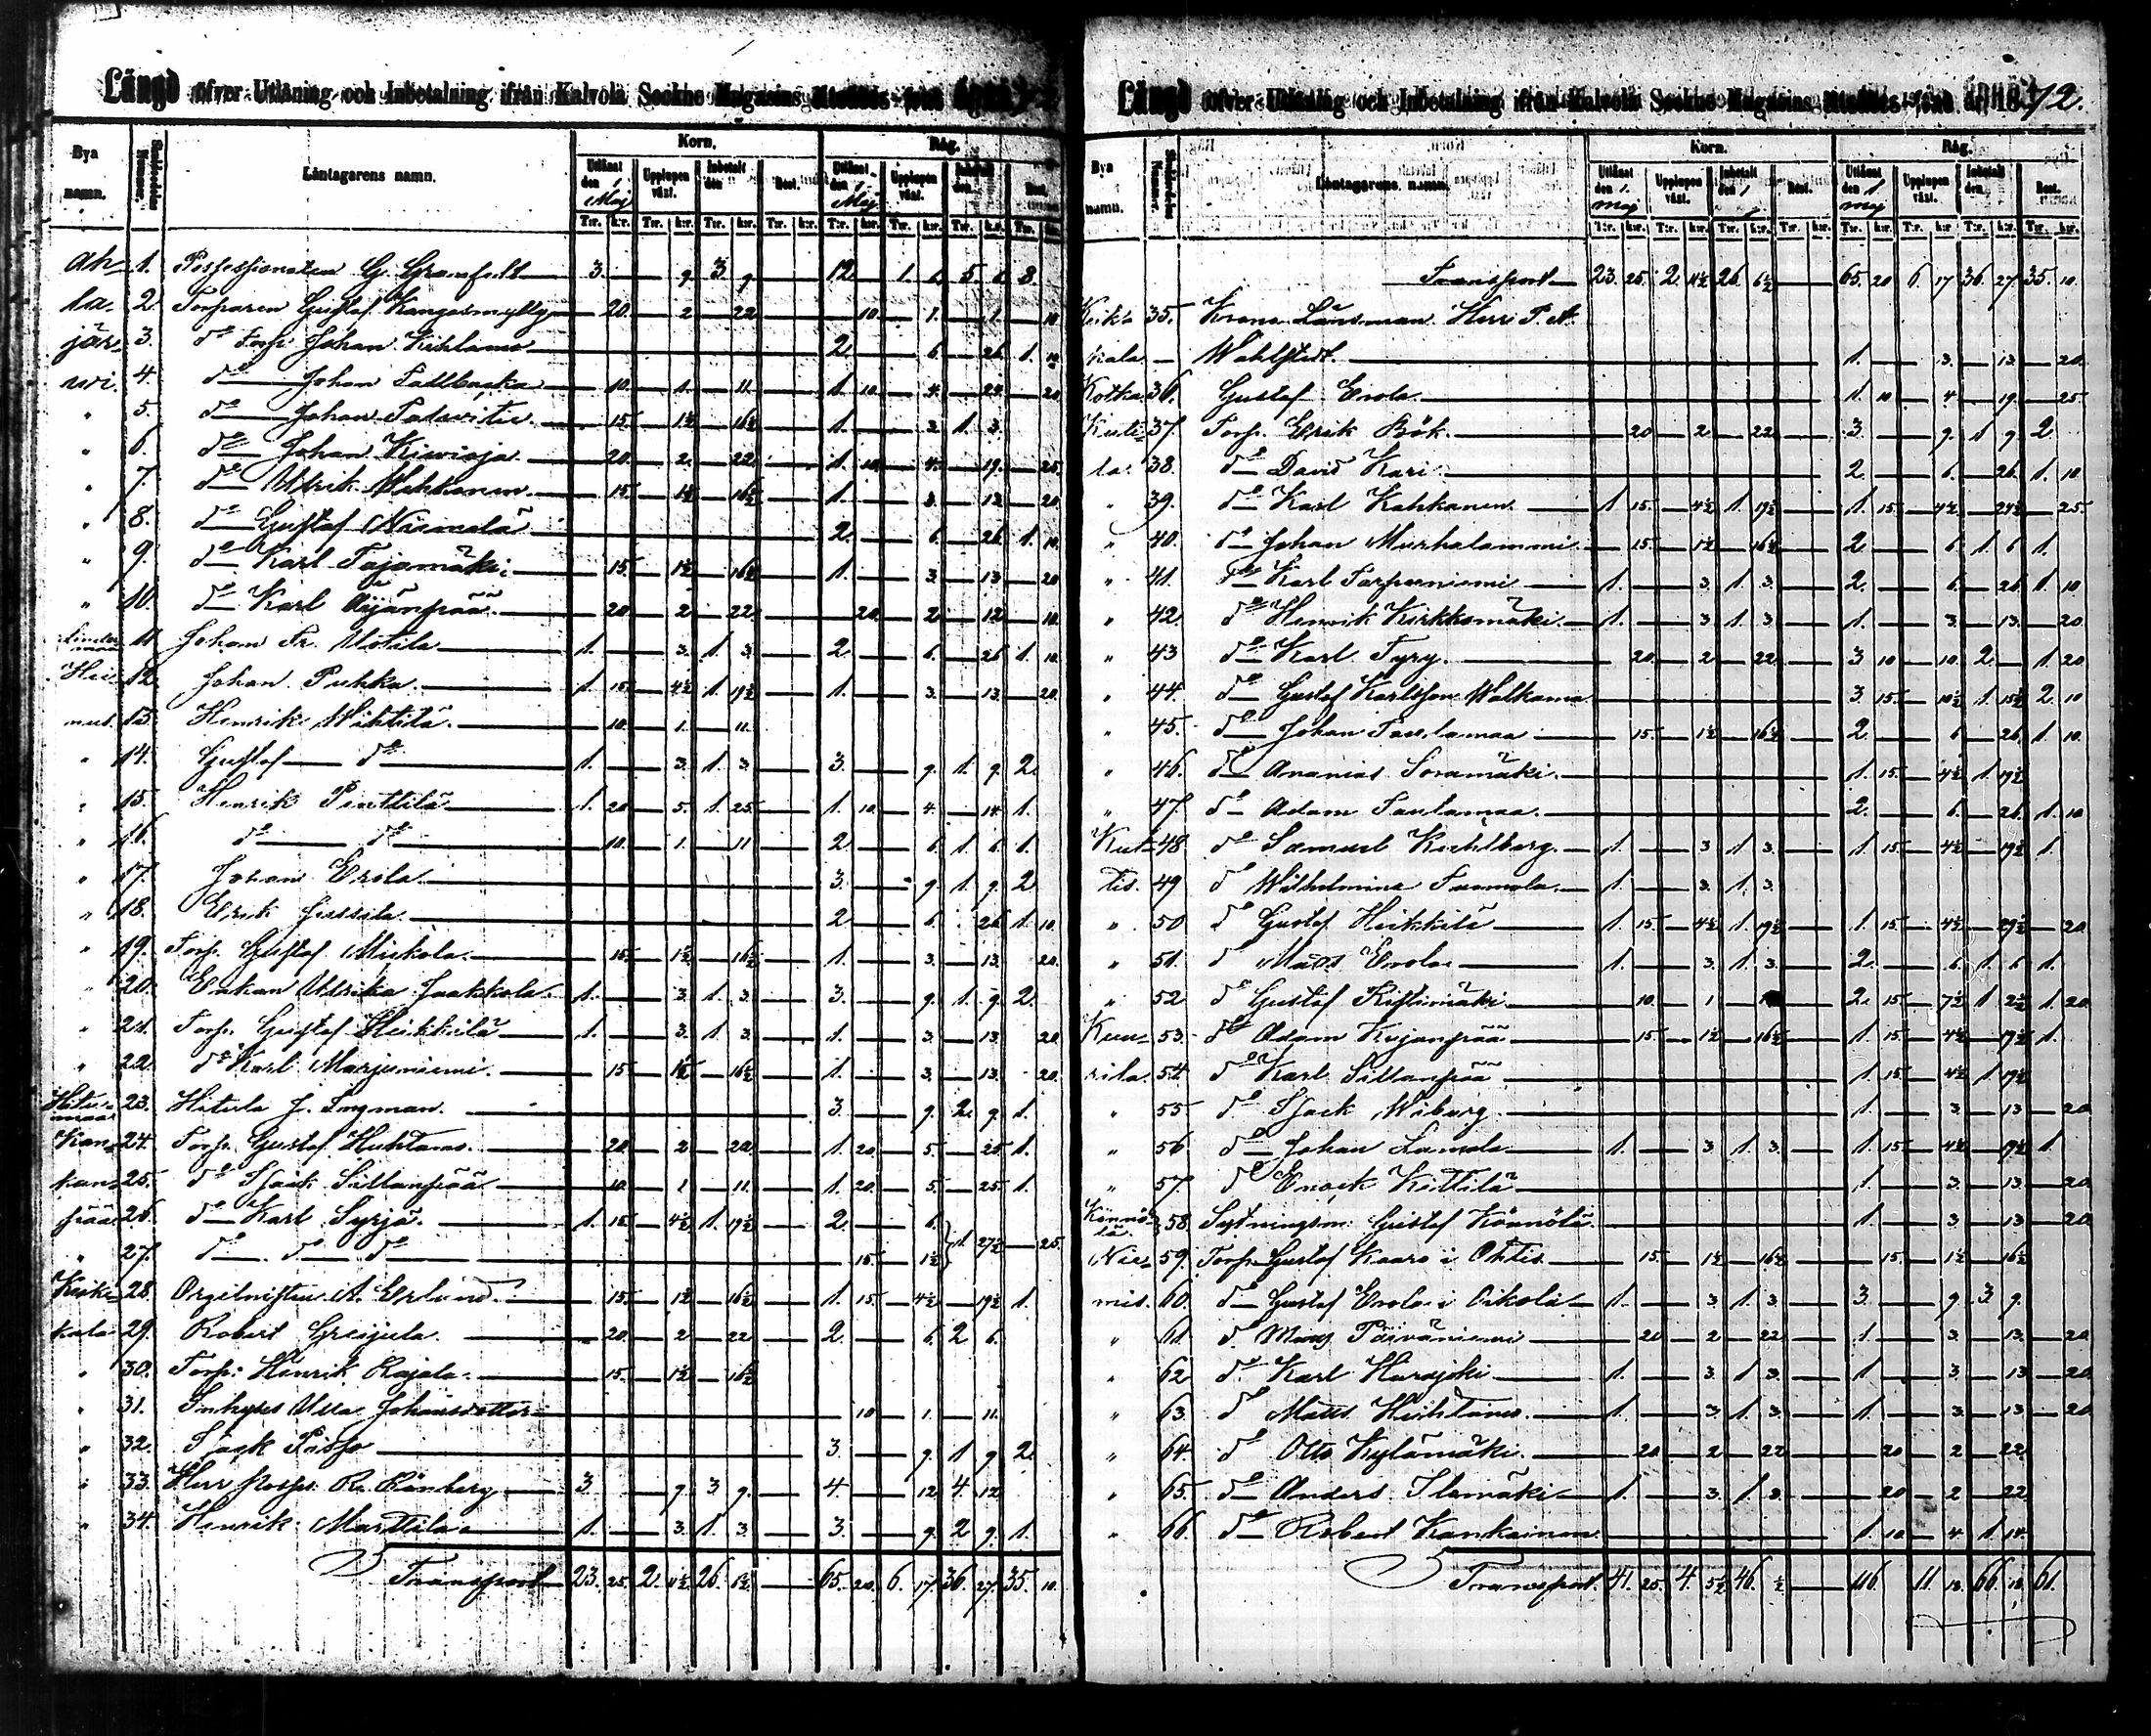 Längd öfver Utlåning och Inbetalning ifrån Kalvola Sockne Magasins
Bya namn. Nummer. Låntagarens namn. Korn. Råg.
Utlånt den 1 Maj Upplupen växt. Inbetalt den Rest. Utlånt den 1 Maj Upplupen växt. Inbetalt den Rest.
T:r. k:r. T:r. k:r. T:r. k:r. T:r. k:r. T:r. k:r. T:r. k:r. T:r. k:r. T:r. k:r.
Ah- 1. Possessionaten G. Granfelt 3. 9 3 9 12 1. 6 5. 6 8
la- 2. Torparen Gustaf Kangasmylly 20. 2 22 10 1. 11 10
jär- 3. do Torp. Johan Kihlamo 2 6 26 1. 10
wi. 4. do Johan Tallbacka 10. 1. 11. 1. 10. 4. 24 20
" 5. do Johan 15 1½ 16½ 1. 3 1. 3.
" 6. do Johan Kivioja 20. 2. 22 1. 10 4. 19. 25.
" 7. do Ulrik Wahkanen 15 1½ 16½ 1. 3. 13 20
" 8. do Gustaf Niemelä 2. 6 26 1. 10.
" 9. do Karl Tajamäki 15. 1½ 16½ 1. 3. 13 20
" 10. do Karl Äijänpää 20 2 22 20. 2 12 10.
11 Johan Fr. Uotila 1. 3. 1. 3. 2. 6. 26 1. 10
Hei- 12. Johan Puhka 1. 15. 4½ 1. 19½ 1. 3. 13. 20.
13. Henrik Wähtilä 10. 1. 11.
" 14. Gustaf do 1. 3. 1. 3. 3. 9 1. 9. 2.
" 15. Henrik Penttilä 1. 20 5. 1. 25. 1. 10. 4. 14. 1.
" 16. do do 10. 1. 11 2 6 1. 6 1.
" 17. Johan Erola 3. 9. 1. 9. 2
" 18. Erik Jussila 2 6 26 1. 10.
" 19. Torp. Gustaf Mickola 15 1½ 16½ 1. 3. 13. 20.
" 20. Enkan Ullrika Jaakkola 1. 3. 1. 3. 3. 9. 1. 9. 2.
" 21. Torp. Gustaf Heikkilä 1. 3. 1. 3. 1. 3. 13. 20.
" 22. do Karl Marjuniemi 15 1½ 16½ 1. 3. 13. 20.
23. Hitula J. Ingman. 3. 9. 2 9. 1.
Kan- 24. Torp. Gustaf Huhtamo 20 2 22 1. 20 5. 25 1.
kan- 25. do Isack Sillanpää 10 1 11. 1. 20. 5. 25. 1.
pää 26. do Karl Syrjä 1. 15. 4½ 1. 19½ 2. 6.
" 27. do do do 15. 1½ 1. 27½ 25.
Keike- 28. Orgelnisten A. Erlund. 15. 1½ 16½ 1. 15. 4½ 19½ 1.
kala 29. Robert Greijula. 20. 2 22 2. 6. 2 6.
" 30. Torp: Henrik Rajala. 15. 1½ 16½
" 31. Inhyses Ulla Johansdotter 10 1. 11.
" 32. Isack Piispo 3. 9. 1. 9. 2.
" 33. Herr R. Rönberg 3 9 3 9. 4. 12. 4. 12
" 34. Henrik Marttila 1. 3. 1. 3. 3. 9. 2 9. 1.
Transport 23. 25. 2. 4½ 26. 6½ 65. 20. 6. 17 36. 27. 35. 10
Längd öfver Utlåning och Inbetalning ifrån Kalvola Sockne Magasins år 1872.
Bya namn. Nummer. Låntagarens namn. Korn. Råg.
Utlånt den 1. maj Upplupen växt. Inbetalt den Rest. Utlånt den 1 maj Upplupen växt. Inbetalt den Rest.
T:r. k:r. T:r. k:r. T:r. k:r. T:r. k:r. T:r. k:r. T:r. k:r. T:r. k:r. T:r. k:r.
Transport 23. 25. 2. 4½ 26. 6½ 65. 20 6. 17 36. 27. 35. 10.
Keike- 35. Krono Länsman Herr P. A.
kala Wahlstedt. 1. 3. 13. 20.
Kotka 36. Gustaf Erola 1. 10 4. 19. 25
37. Torp. Erik Bök 20 2 22 3. 9. 1 9. 2
la. 38. do David Kari 2. 6. 26. 1. 10
" 39. do Karl Kahkanen 1. 15. 4½ 1. 19½ 1. 15. 4½ 24½ 25.
" 40. do Johan Murhalammi 15. 1½ 16½ 2. 6 1. 6 1.
" 41. do Karl Tarpuniemi 1. 3. 1. 3. 2. 6. 26 1. 10
" 42. do Henrik Kirkkomäki 1. 3. 1. 3. 1. 3. 13. 20
" 43 do Karl Tyry. 20. 2 22 3 10 10. 2. 1. 20
" 44. do Gustaf Karlsson Walkama 3. 15. 10½ 1. 15½ 2. 10
" 45. do Johan Tautamaa 15. 1½ 16½ 2. 6 26. 1. 10.
" 46. do Ananias Soramäki 1. 15 4½ 1 19½
" 47. do Adam Tautamaa 2. 6. 26. 1. 10
Kut- 48 do Samuel Kuhlberg 1. 3 1. 3. 1. 15. 4½ 19½ 1.
tis. 49. do Wilhelmina Tuomola 1. 3. 1. 3.
" 50 do Gustaf Heikkilä 1. 15. 4½ 1. 19½ 1. 15. 4½ 29½ 20
" 51. do Mats Erola 1. 3. 1. 3. 2. 6 1. 6 1.
" 52 do Gustaf 10. 1 2. 15. 7½ 1 2½ 1. 20
Kuu- 53. do Adam Kujanpää 15. 1½ 16½ 1. 15. 4½ 19½ 1.
rila. 54. do Karl Sillanpää 1. 15. 4½ 1 19½
" 55 do Isack Wiberg 1. 3. 13 20
" 56 do Johan Lamola 1. 3 1. 3. 1. 15. 4½ 19½ 1.
" 57. do Enock Kittilä 1. 3. 13. 20
Könnö-lä. 58. Sytningsm: Gustaf Könnölä 1. 3 13 20
Nie- 59. Torp. Gustaf Kaars i Ohtis 15. 1½ 16½ 15. 1½ 16½
mis. 60. do Gustaf Erola i Oikola 1. 3. 1. 3. 3. 9. 3 9.
" 61. do Päiväniemi 20 2 22 1. 3. 13. 20
" 62 do Karl Harajoki 1. 3. 1. 3. 1. 3 13 20
" 63. do Matts Huhtamo. 1. 3. 1. 3. 1. 3. 13 20
" 64. do Otto Kylämäki. 20 2 22 20 2 22
" 65. do Anders Ilamäki 1. 3. 1. 3. 20 2 22
" 66. do Robert Kankainen 1. 10 4 1. 14.
Transport. 41. 25. 4. 5½ 46. ½ 116. 11 18. 66. 18. 61.